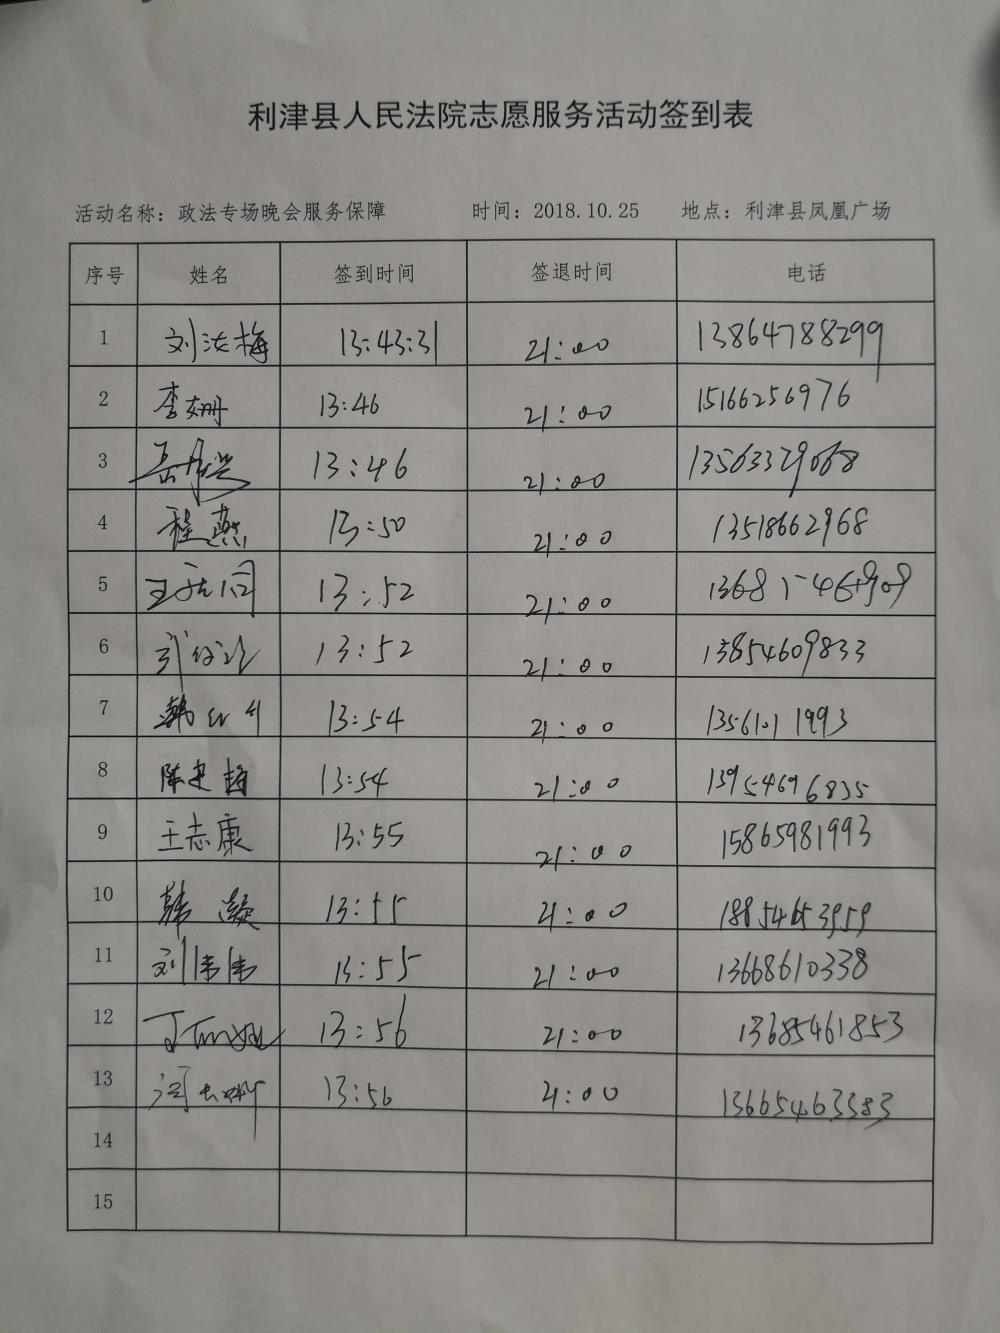 利津县人民法院志愿服务活动签到表
活动名称：政法专场晚会服务保障 时间：2018.10.25 地点：利津县凤凰广场
序号 姓名 签到时间 签退时间 电话
1 刘法梅 13:43:31 21:00 13864788299
2 李姗 13:46 21:00 15166256976
3 13:46 21:00 13563329068
4 程燕 13:50 21:00 13518662968
5 13:52 21:00
6 13:52 21:00 13854609833
7 13:54 21:00 13561011993
8 陈建梅 13:54 21:00 13954696835
9 王志康 13:55 21:00 15865981993
10 韩凝 13:55 21:00 18854653959
11 刘伟伟 13:55 21:00 13668610338
12 13:56 21:00 13685461853
13 13:56 21:00 13665463383
14
15